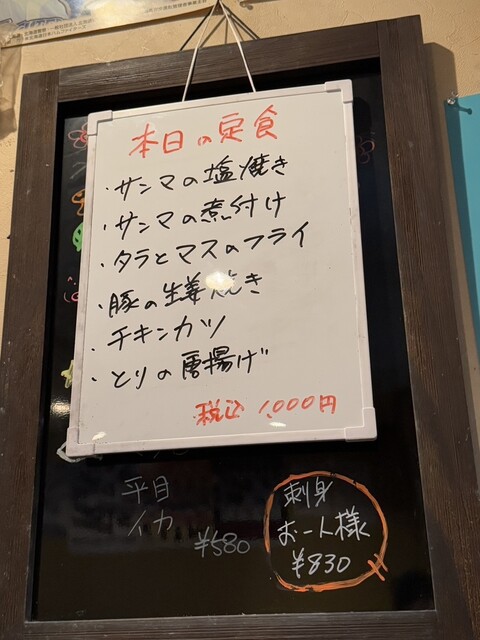 本日の定食
・サンマの塩焼き
・サンマの煮付け
・タラとマスのフライ
・豚の生姜焼き
・チキンカツ
・とりの唐揚げ
税込 1,000円
平目
イカ
¥580
刺身
お一人様
¥830